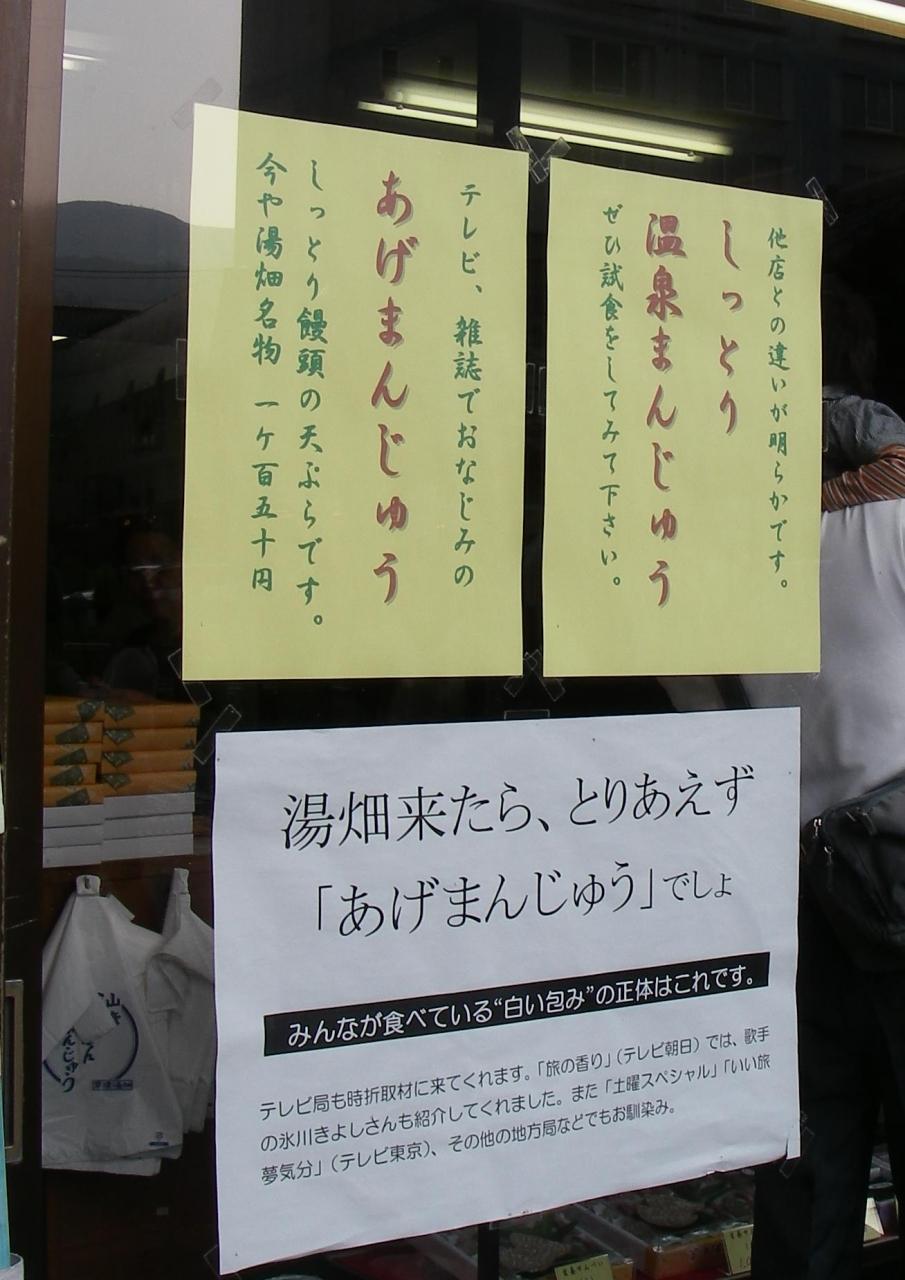 他店との違いが明らかです。
しっとり
温泉まんじゅう
ぜひ試食をしてみて下さい。
テレビ、雑誌でおなじみの
あげまんじゅう
しっとり饅頭の天ぷらです。
今や湯畑名物 一ケ百五十円
湯畑来たら、とりあえず
「あげまんじゅう」でしょ
みんなが食べている“白い包み”の正体はこれです。
テレビ局も時折取材に来てくれます。「旅の香り」（テレビ朝日）では、歌手
の氷川きよしさんも紹介してくれました。また「土曜スペシャル」「いい旅
夢気分」（テレビ東京）、その他の地方局などでもお馴染み。